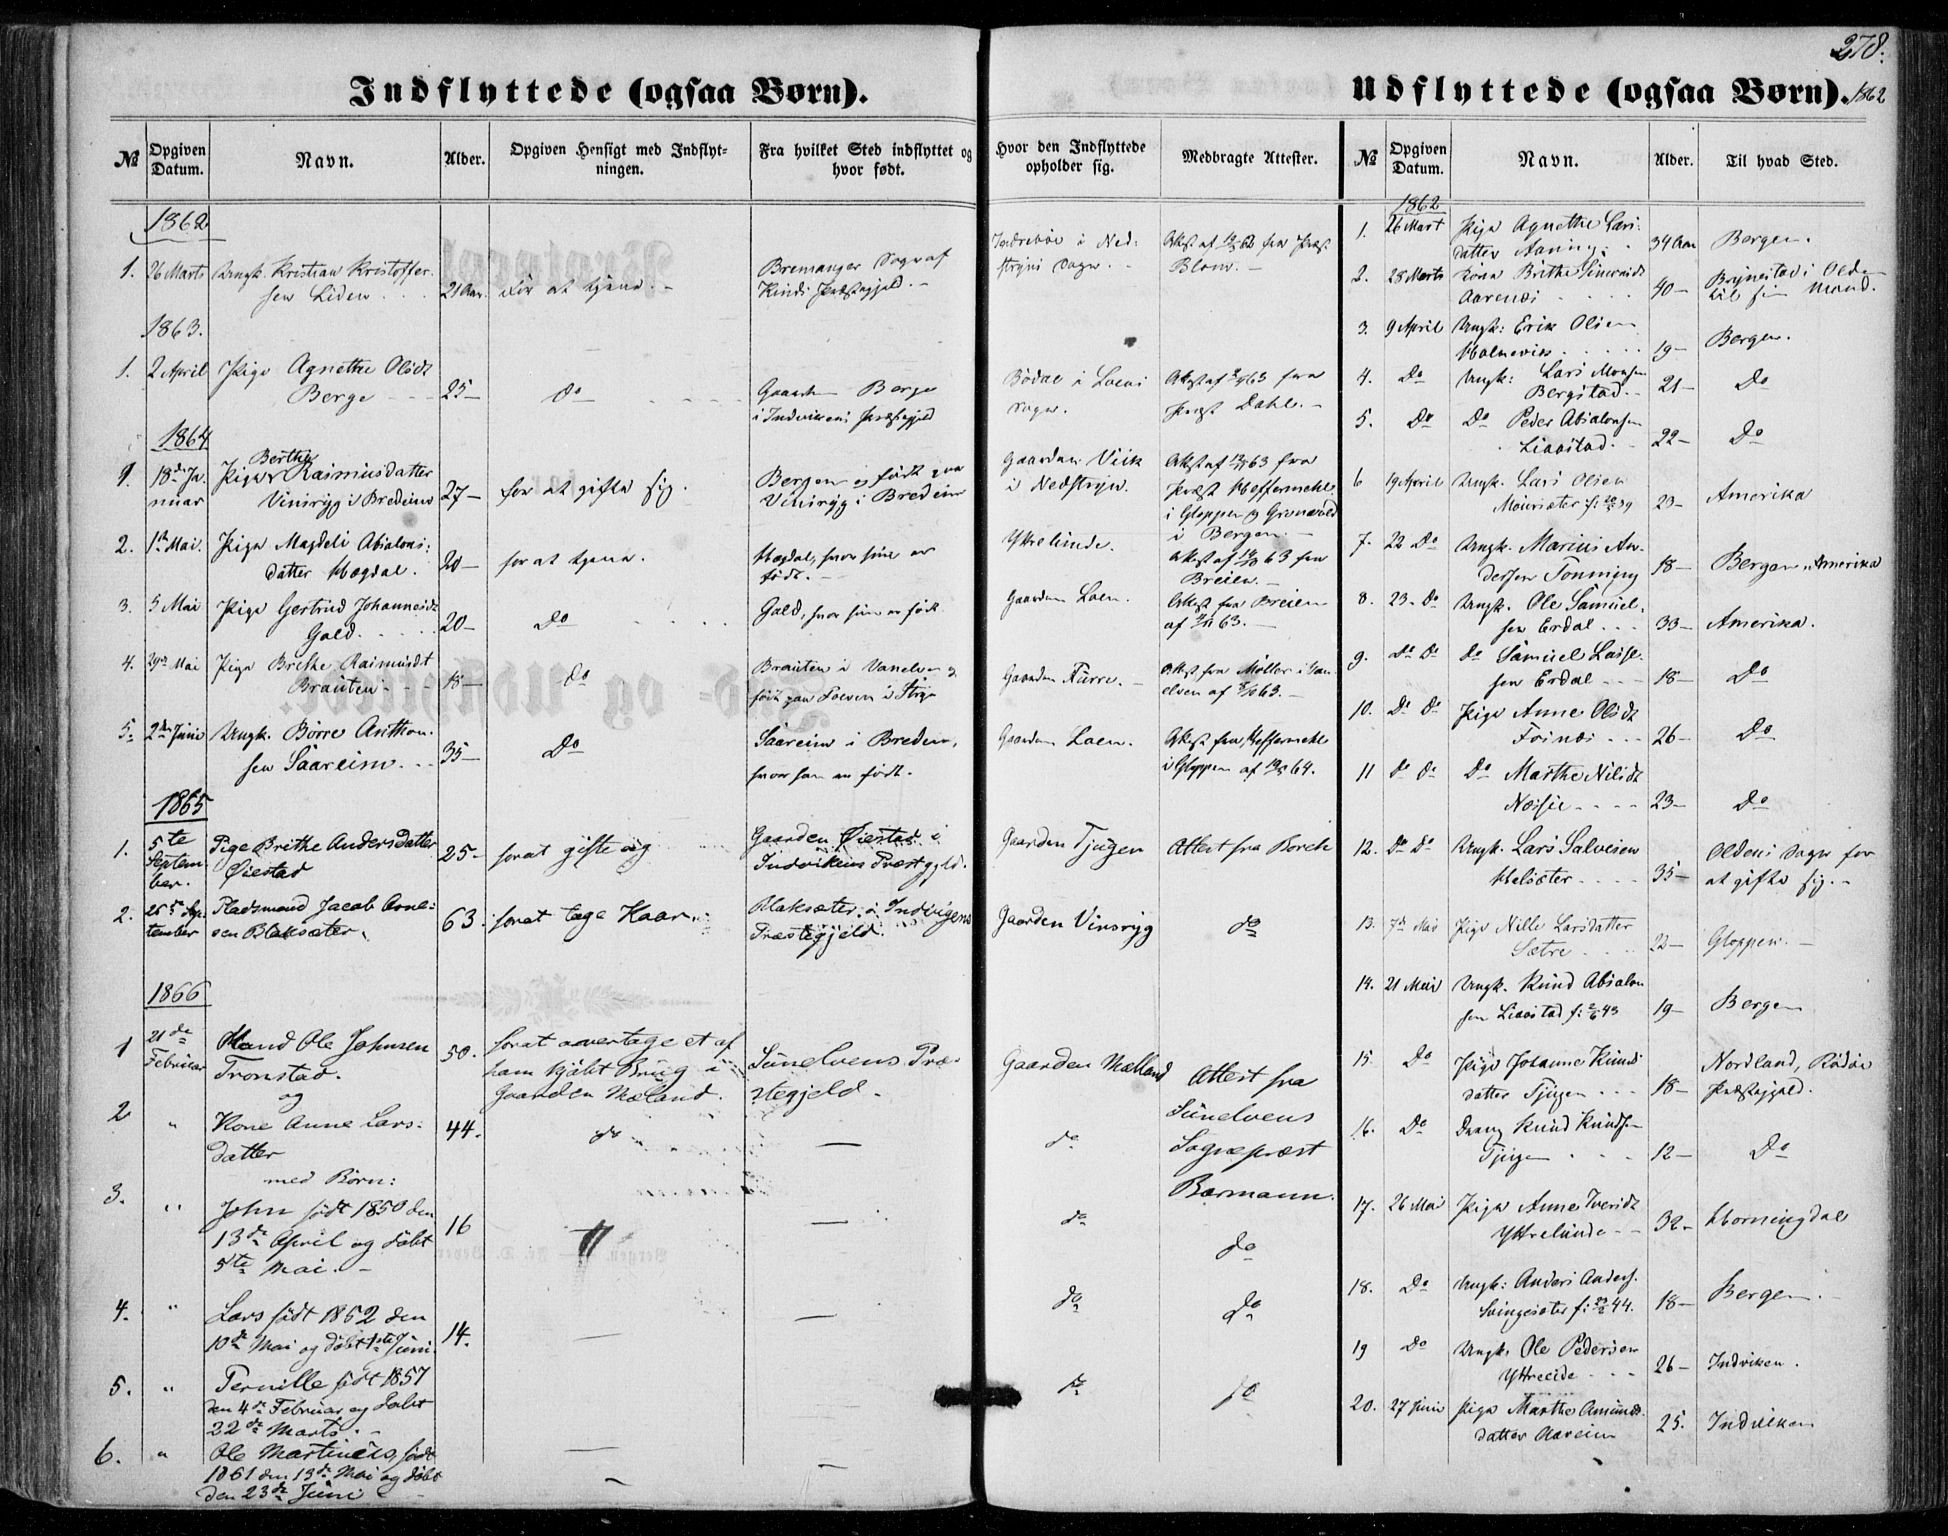 278.
Indflyttede (ogsaa Børn).
№
Opgiven Datum.
Navn.
Alder.
Opgiven Hensigt med Indflyt-
ningen.
Fra hvilket Sted indflyttet og
hvor født.
Hvor den Indflyttede
opholder sig.
Medbragte Attester.
1862
1. 26 Marts Ungk. Kristian Kristoffer-
sen Liden 21 Aar. For at tjene.
Bremanger Sogn af
Kinds Præstegjeld.
i Ned-
stryns Sogn.
Attest af fra Præst
Blom.
1863.
1. 2 April Pige Agnethe Olsdt
Berge 25 do
Gaarden Berge
i Indvikens Præstegjeld
Bødal i Loens
Sogn.
Attest af 63 fra
Præst Dahl.
1864
1. 18de Ja-
nuar
Pige Berthe Rasmusdatter
Vinsryg i Bredeim 27 for at gifte sig.
Bergen og født paa
Vinsryg i Bredeim
Gaarden Viik
i Nedstryn.
Attest af 63 fra
Præst Heffermehl
i Gloppen og Grønvold
i Bergen.
2. 1ste Mai. Pige Magdeli Absalons-
datter Hegdal. 20 for at tjene.
Hægdal, hvor hun er
født.
Yttrelunde.
Attest af 63 fra
Breien.
3. 5 Mai Pige Gertrud Johannesdt
Gald 20 Do
Gald, hvor hun er født
Gaarden Loen.
Attest fra Breien
af 63.
4. 29de Mai Pige Brithe Rasmusdt
Brauten 18 do
Brauten i Vanelven og
født paa i Stryn
Gaarden Furre.
Attest fra Møller i Van-
elven af 63.
5. 2den Juni Ungk. Børre Anthon-
sen Saareim 35 Do
Saareim i Bredeim,
hvor han er født.
Gaarden Loen.
Attest fra Heffermehl
i Gloppen af 64.
1865
1. 5te
Septem-
ber.
Pige Brithe Andersdatter
Øiestad 25 forat gifte sig
Gaarden Øiestad i
Indvikens Præstgjeld.
Gaarden Tjugen
Attest fra Borch
2. 26de Sep-
tember
Pladsmand Jacob Arne-
sen Blaksæter. 63. forat tage Kaar
Blaksæter i Indvigens
Præstegjeld.
Gaarden Vinsryg
do
1866
1 21de
Februar
Mand Ole Johnsen
Tronstad.
og
50. forat overtage et af
ham kjøbt Brug i
Gaarden Mæland.
Sunelvens Præ-
stegjeld.
Gaarden Mælland
Attest fra
Sunelvens
Sognepræst
Barmann.
2 " Kone Anne Lars-
datter 44. do — do
med Børn:
3. " John født 1850 den
13de April og døbt
5te Mai. 16 " — do do
4. " Lars født 1852 den
10de Mai og døbt 1ste Juni 14. — — do do
5. " Pernille født 1857
den 4de Februar og døbt
22de Marts. — do do
6. " Ole Martinius, født
1861 den 13de Mai og døbt
den 23de Juni —
Udflyttede (ogsaa Børn). 1862
№
Opgiven Datum.
Navn.
Alder.
Til hvad Sted.
1862
1. 26 Mart Pige Agnethe Lars-
datter Aaning 34 Aar Bergen.
2. 28 Marts Kone Brithe Simonsdt
Aarenæs 40 Brynestad i Olden
til sin Mand.
3. 9 April Ungk: Erik Olsen
Holmevik 19 Bergen.
4. Do Ungk: Lars Monsen
Bergstad. 21 Do
5. Do Do Peder Absalonsen
Liaastad 22 Do
6 19 April Ungk. Lars Olsen
Moursæter f: 39 23 Amerika
7. 22 Do Ungk. Marius An-
dersen Tonning 18 Bergen, Amerika
8. 23. Do Ungk. Ole Samuel-
sen Erdal 33 Amerika.
9. Do Do Do Samuel Lasse-
sen Erdal 18 Do
10. Do Do Pige Anne Olsdt
Fosnæs 26 Do
11 Do Do Do Marthe Nilsdt
Næsje 23 Do
12. Do Do Ungk. Lars Salvesen
Helsæter 35 Oldens Sogn for
at gifte sig.
13. 7de Mai Pige Nille Larsdatter
Sætre 22 Gloppen.
14. 21 Mai Ungk. Knud Absalon-
sen Liaastad f: 43 19 Bergen
15. Do Pige Johanne Knuds-
datter Tjugen 18 Nordland, Rødøe
Præstegjeld.
16. Do Dreng Knud Knudsen
Tjugen 12 Do
17. 26 Mai Pige Anne Iversdt
Yttrelunde 32 Horningdal
18. Do Ungk: Anders Anders.
Svingesæter f: 44. 18 Bergen.
19 Do Ungk. Ole Pedersen
Yttreeide 26 Indviken.
20. 27 Juni Pige Marthe Amunds-
datter Aareim 25. Indviken